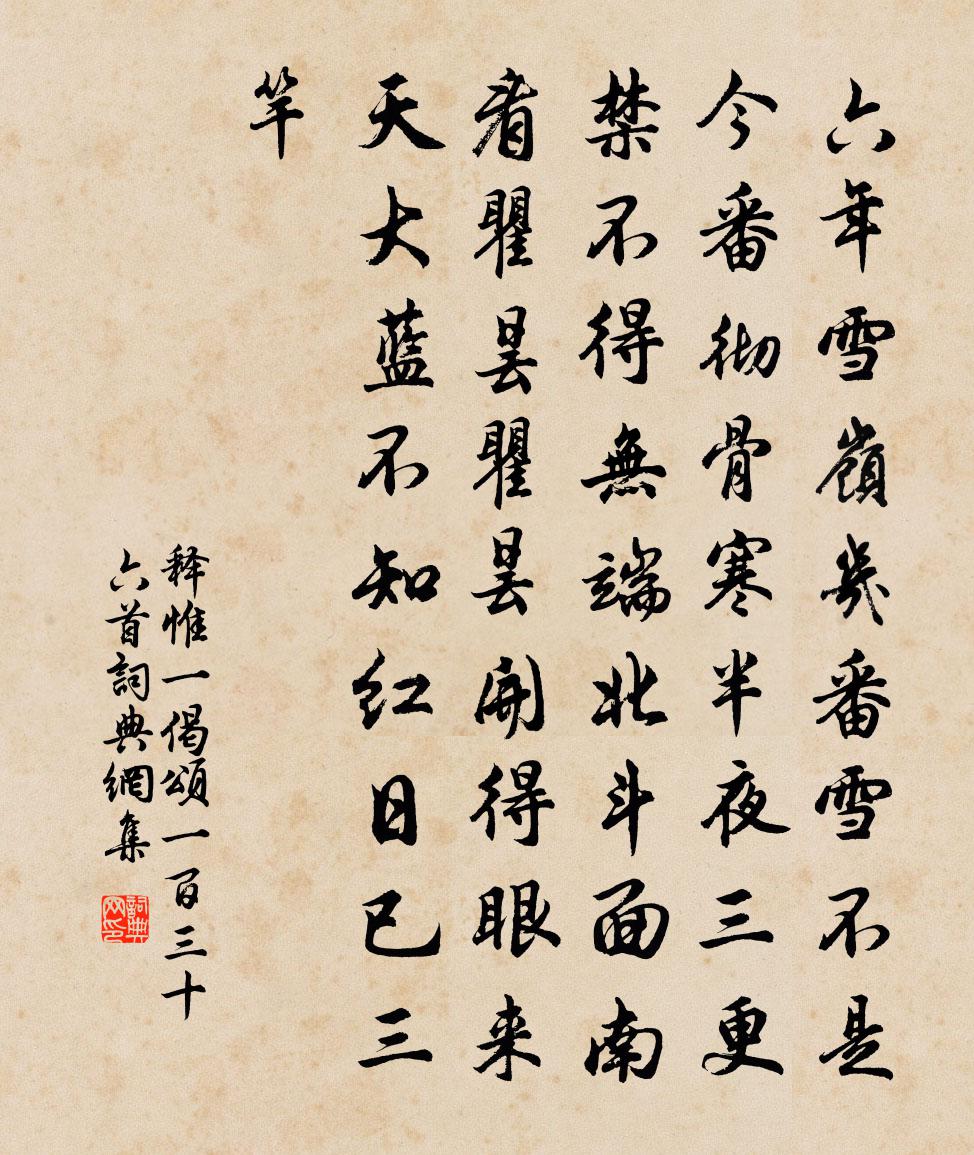 六年雪嶺幾番雪不是
今番彻骨寒半夜三更
禁不得無端北斗面南
看瞿曇瞿曇開得眼来
天大藍不知红日已三
竿
释惟一偈頌一百三十
六首詞典網集
詞典
网印